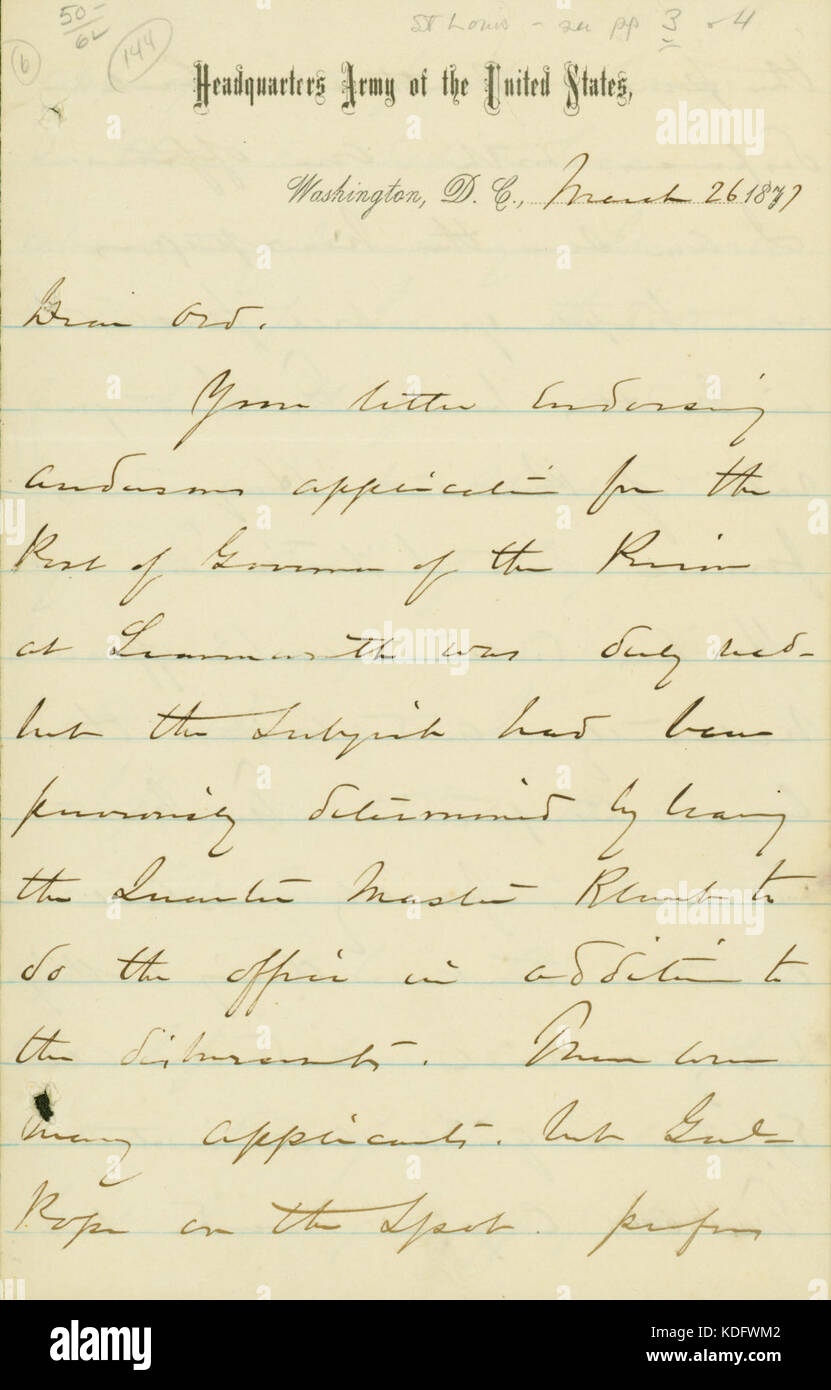 50-
62
144
6
St Louis - see pp 3 & 4
Headquarters Army of the United States,
Washington, D. C., March 26 1877
Dear Ord.
Your letter endorsing
Andersons application for the
Post of Governor of the Prison
at Leavenworth was duly recd-
but the Subject had been
previously determined by having
the Quarter Master to
do the office in addition to
the disbursements. There were
many applicants. but Genl-
Pope on the Spot. prefers
alamy
alamy stock photo
KDFWM2
www.alamy.com